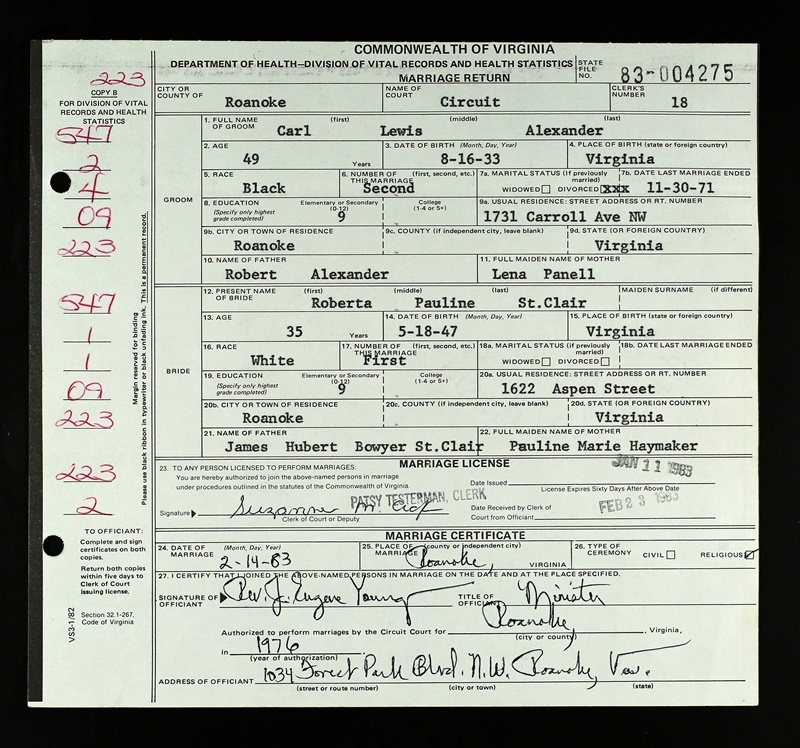 COMMONWEALTH OF VIRGINIA
DEPARTMENT OF HEALTH—DIVISION OF VITAL RECORDS AND HEALTH STATISTICS
MARRIAGE RETURN
STATE FILE NO. 83-004275
223
COPY B
FOR DIVISION OF VITAL RECORDS AND HEALTH STATISTICS
547
2
4
09
223
547
1
1
09
223
223
2
Margin reserved for binding
Please use black ribbon in typewriter or black unfading ink. This is a permanent record.
TO OFFICIAL:
Complete and sign certificates on both copies.
Return both copies within five days to Clerk of Court issuing license.
Section 32.1-267, Code of Virginia
VS3-1/82
CITY OR COUNTY OF Roanoke NAME OF COURT Circuit CLERK'S NUMBER 18
GROOM
1. FULL NAME OF GROOM (first) (middle) (last)
Carl Lewis Alexander
2. AGE 49 Years 3. DATE OF BIRTH (Month, Day, Year) 8-16-33 4. PLACE OF BIRTH (state or foreign country) Virginia
5. RACE Black 6. NUMBER OF THIS MARRIAGE (first, second, etc.) Second 7a. MARITAL STATUS (If previously married) WIDOWED DIVORCED xxx 7b. DATE LAST MARRIAGE ENDED 11-30-71
8. EDUCATION (Specify only highest grade completed) Elementary or Secondary (0-12) 9 College (1-4 or 5+) 9a. USUAL RESIDENCE: STREET ADDRESS OR RT. NUMBER 1731 Carroll Ave NW
9b. CITY OR TOWN OF RESIDENCE Roanoke 9c. COUNTY (if independent city, leave blank) 9d. STATE (OR FOREIGN COUNTRY) Virginia
10. NAME OF FATHER Robert Alexander 11. FULL MAIDEN NAME OF MOTHER Lena Panell
BRIDE
12. PRESENT NAME OF BRIDE (first) (middle) (last) MAIDEN SURNAME (if different)
Roberta Pauline St.Clair
13. AGE 35 Years 14. DATE OF BIRTH (Month, Day, Year) 5-18-47 15. PLACE OF BIRTH (state or foreign country) Virginia
16. RACE White 17. NUMBER OF THIS MARRIAGE (first, second, etc.) First 18a. MARITAL STATUS (If previously married) WIDOWED DIVORCED 18b. DATE LAST MARRIAGE ENDED
19. EDUCATION (Specify only highest grade completed) Elementary or Secondary (0-12) 9 College (1-4 or 5+) 20a. USUAL RESIDENCE: STREET ADDRESS OR RT. NUMBER 1622 Aspen Street
20b. CITY OR TOWN OF RESIDENCE Roanoke 20c. COUNTY (if independent city, leave blank) 20d. STATE (OR FOREIGN COUNTRY) Virginia
21. NAME OF FATHER James Hubert Bowyer St.Clair 22. FULL MAIDEN NAME OF MOTHER Pauline Marie Haymaker
MARRIAGE LICENSE
23. TO ANY PERSON LICENSED TO PERFORM MARRIAGES:
You are hereby authorized to join the above-named persons in marriage under procedures outlined in the statutes of the Commonwealth of Virginia.
Date Issued JAN 11 1983
License Expires Sixty Days After Above Date
PATSY TESTERMAN, CLERK
Signature Suzanne M.
Clerk of Court or Deputy
Date Received by Clerk of Court from Official FEB 23 1983
MARRIAGE CERTIFICATE
24. DATE OF MARRIAGE (Month, Day, Year) 2-14-83 25. PLACE OF MARRIAGE (county or independent city) Roanoke, VIRGINIA 26. TYPE OF CEREMONY CIVIL RELIGIOUS
27. I CERTIFY THAT I JOINED THE ABOVE-NAMED PERSONS IN MARRIAGE ON THE DATE AND AT THE PLACE SPECIFIED.
SIGNATURE OF OFFICIANT Rev. J. Eugene Young TITLE OF OFFICIANT Minister
Authorized to perform marriages by the Circuit Court for Roanoke, (city or county), Virginia,
in 1976 (year of authorization).
ADDRESS OF OFFICIANT 1034 Forest Park Blvd. N.W. Roanoke, Va.
(street or route number) (city or town) (state)